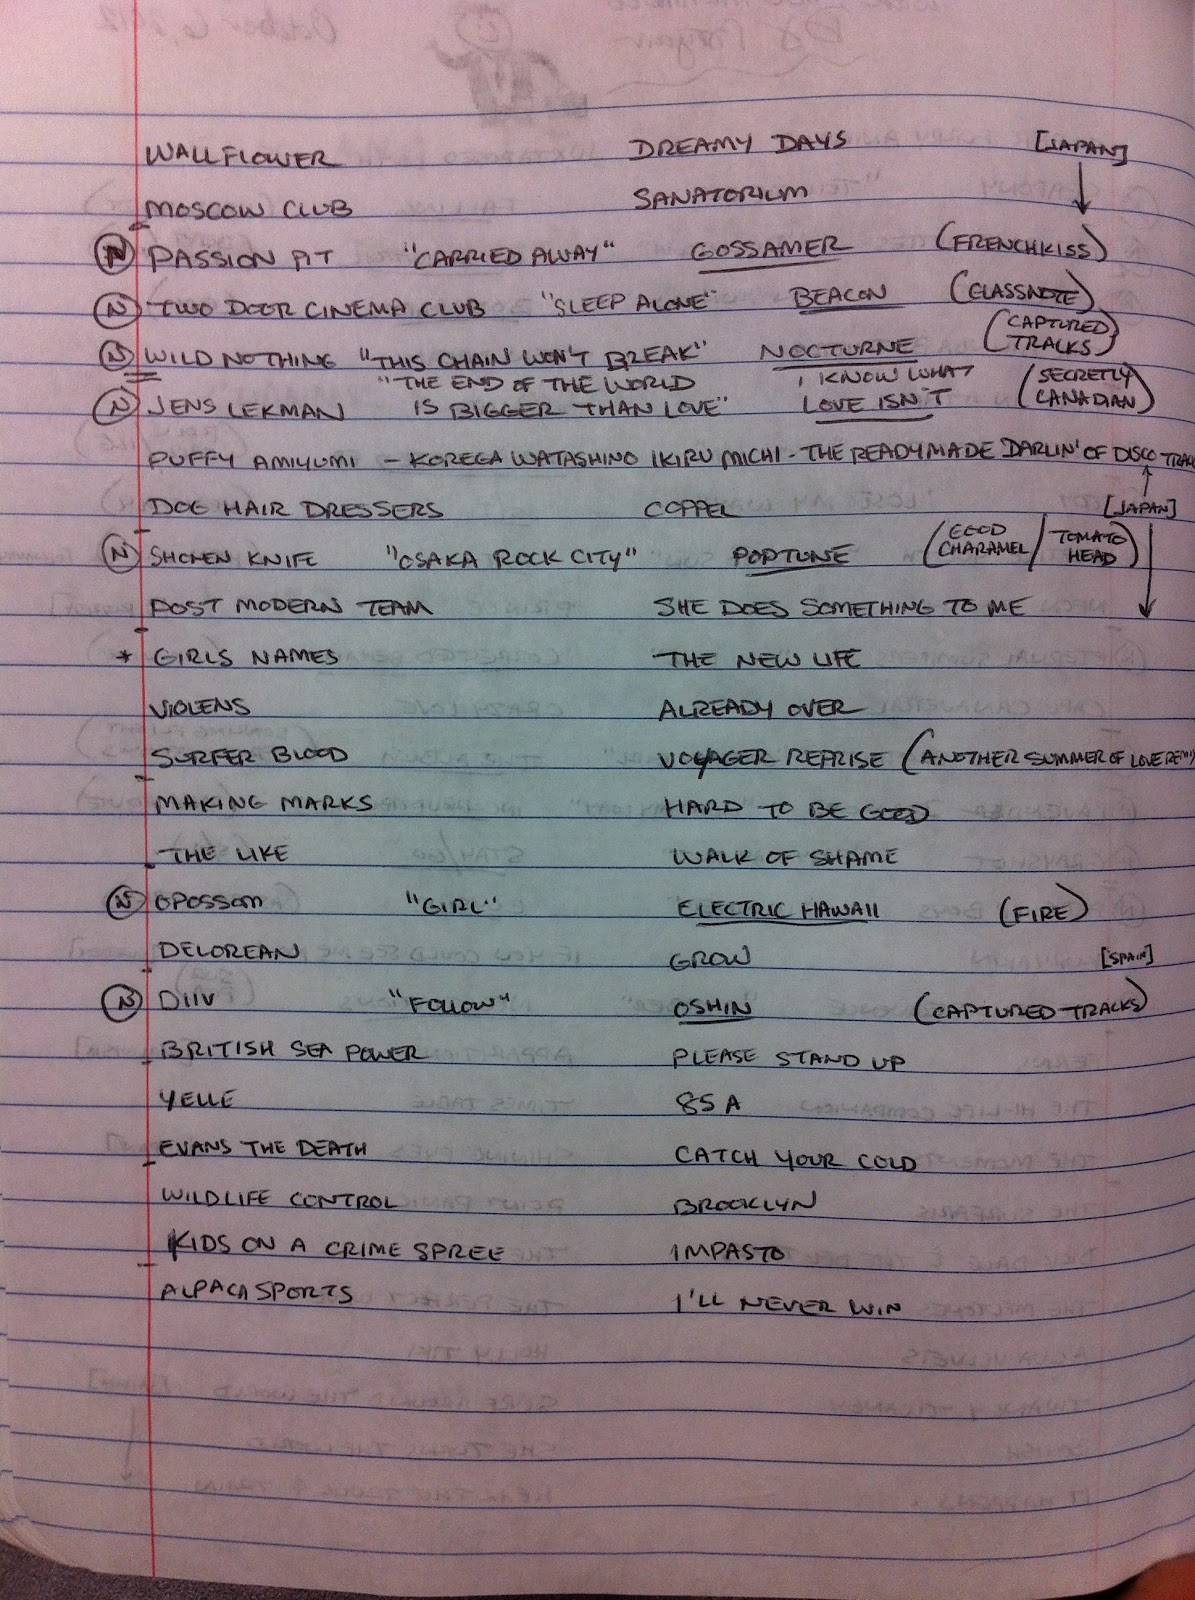 WALLFLOWER DREAMY DAYS [JAPAN]
MOSCOW CLUB SANATORIUM
(N) PASSION PIT "CARRIED AWAY" GOSSAMER (FRENCHKISS)
(N) TWO DOOR CINEMA CLUB "SLEEP ALONE" BEACON (GLASSNOTE)
(N) WILD NOTHING "THIS CHAIN WON'T BREAK" NOCTURNE (CAPTURED TRACKS)
(N) JENS LEKMAN "THE END OF THE WORLD IS BIGGER THAN LOVE" I KNOW WHAT LOVE ISN'T (SECRETLY CANADIAN)
PUFFY AMIYUMI - KOREGA WATASHINO IKIRU MICHI - THE READYMADE DARLIN' OF DISCO TRACK
DOG HAIR DRESSERS COPPEL [JAPAN]
(N) SHONEN KNIFE "OSAKA ROCK CITY" POP TUNE (GOOD CHARAMEL / TOMATO HEAD)
POST MODERN TEAM SHE DOES SOMETHING TO ME
* GIRLS NAMES THE NEW LIFE
VIOLENS ALREADY OVER
SURFER BLOOD VOYAGER REPRISE (ANOTHER SUMMER OF LOVE REMIX)
MAKING MARKS HARD TO BE GOOD
THE LIKE WALK OF SHAME
(N) OPOSSOM "GIRL" ELECTRIC HAWAII (FIRE)
DELOREAN GROW [SPAIN]
(N) DIIV "FOLLOW" OSHIN (CAPTURED TRACKS)
BRITISH SEA POWER PLEASE STAND UP
YELLE 85 A
EVANS THE DEATH CATCH YOUR COLD
WILDLIFE CONTROL BROOKLYN
KIDS ON A CRIME SPREE IMPASTO
ALPACA SPORTS I'LL NEVER WIN